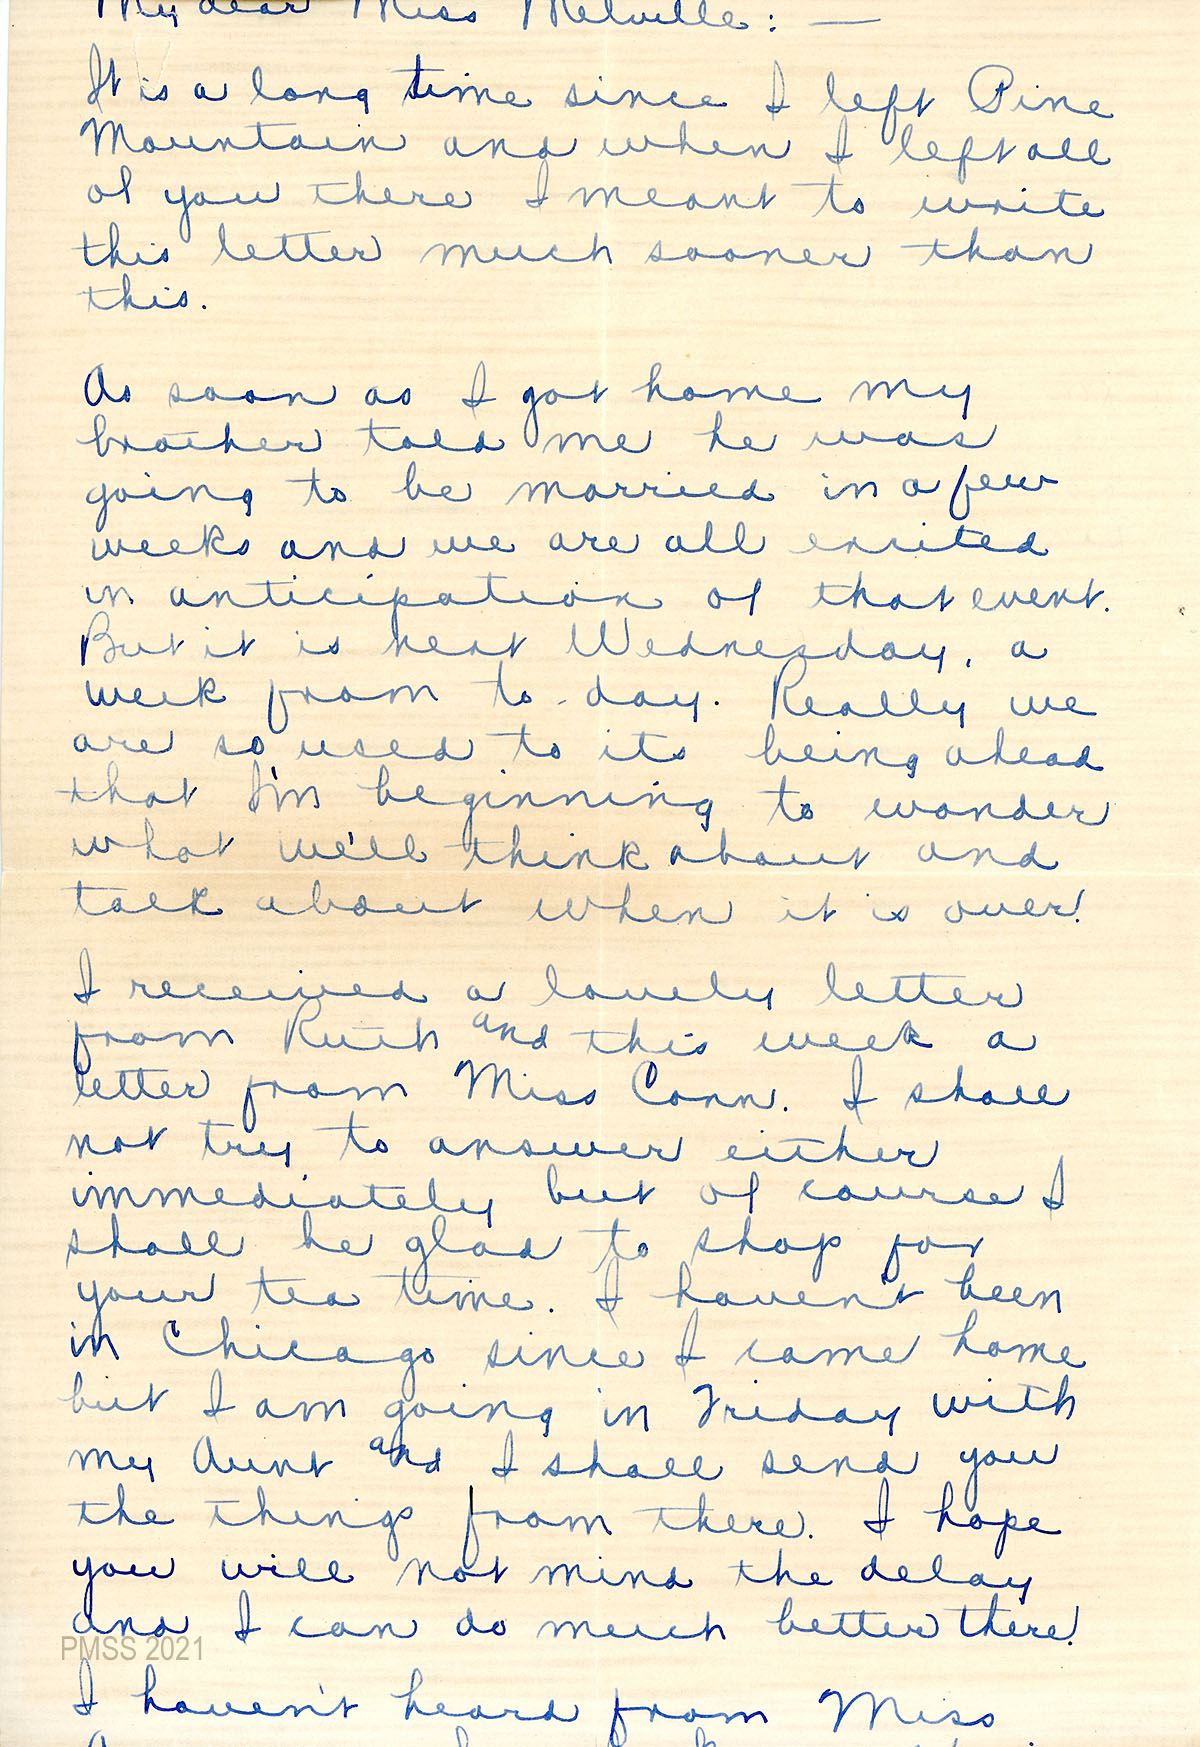 My dear Miss Melville: —
It is a long time since I left Pine
Mountain and when I left all
of you there I meant to write
this letter much sooner than
this.
As soon as I got home my
brother told me he was
going to be married in a few
weeks and we are all excited
in anticipation of that event.
But it is next Wednesday, a
week from to-day. Really we
are so used to its being ahead
that I'm beginning to wonder
what we'll think about and
talk about when it is over!
I received a lovely letter
from Ruth and this week a
letter from Miss Conn. I shall
not try to answer either
immediately but of course I
shall be glad to shop for
your tea time. I haven't been
in Chicago since I came home
but I am going in Friday with
my Aunt and I shall send you
the things from there. I hope
you will not mind the delay
and I can do much better there!
PMSS 2021
I haven't heard from Miss